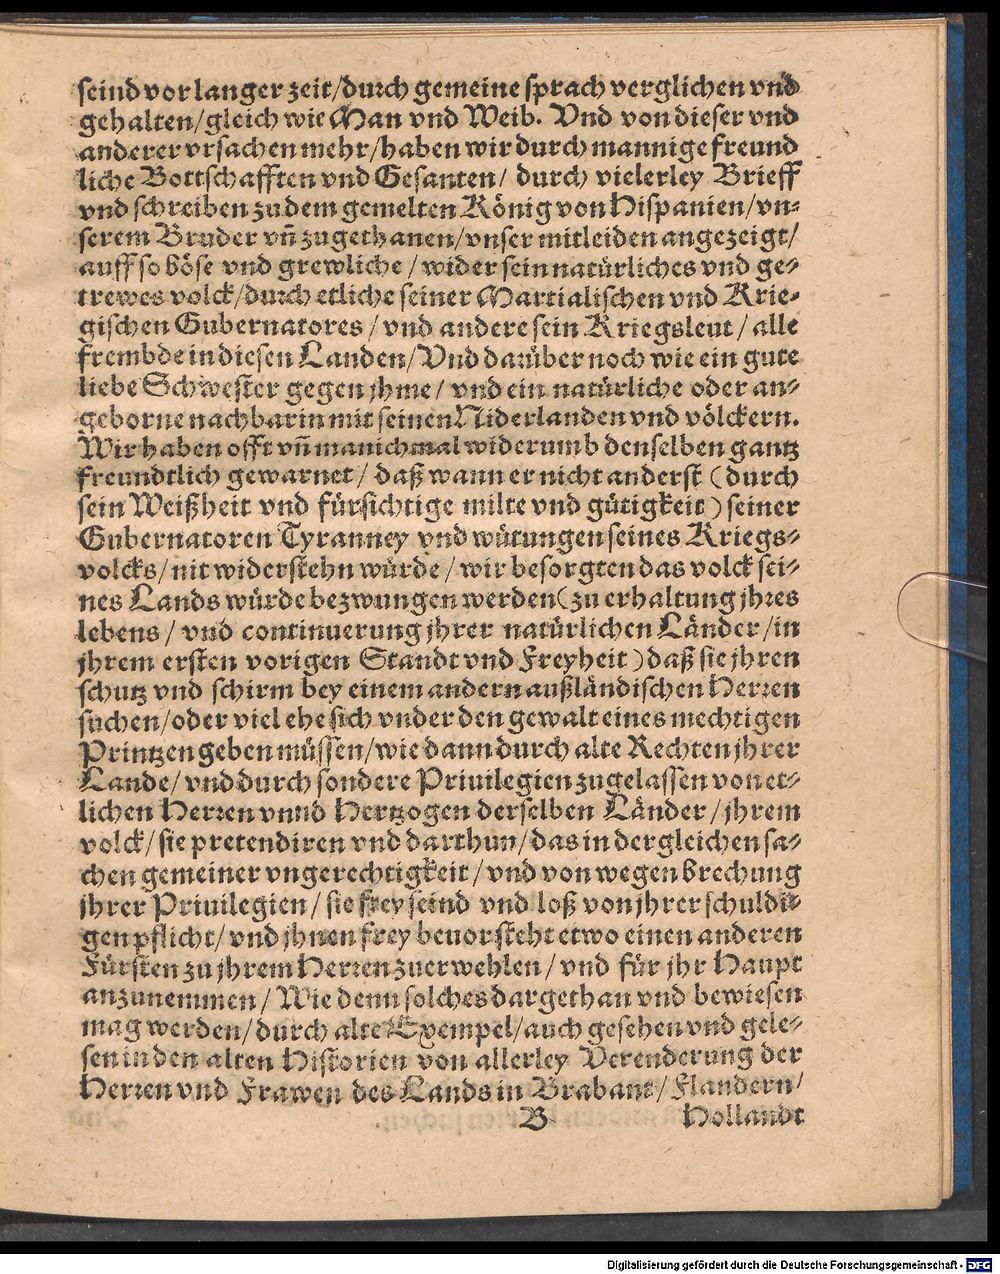 seind vor langer zeit/durch gemeine sprach verglichen vnd
gehalten/gleich wie Man vnd Weib. Vnd von dieser vnd
anderer vrsachen mehr/haben wir durch mannige freund
liche Bottschafften vnd Gesanten/ durch vielerley Brieff
vnd schreiben zu dem gemelten König von Hispanien/vn-
serem Bruder vñ zugethanen/vnser mitleiden angezeigt/
auff so böse vnd grewliche / wider sein natürliches vnd ge-
trewes volck/durch etliche seiner Martialischen vnd Krie-
gischen Gubernatores / vnd andere sein Kriegsleut / alle
frembde in diesen Landen/Vnd darüber noch wie ein gute
liebe Schwester gegen jhme / vnd ein natürliche oder an-
geborne nachbarin mit seinen Niderlanden vnd völckern.
Wir haben offt vñ manichmal widerumb denselben gantz
freundtlich gewarnet / daß wann er nicht anderst (durch
sein Weißheit vnd fürsichtige milte vnd gütigkeit) seiner
Gubernatoren Tyranney vnd wütungen seines Kriegs-
volcks/nit widerstehn würde / wir besorgten das volck sei-
nes Lands würde bezwungen werden(zu erhaltung jhres
lebens / vnd continuerung jhrer natürlichen Länder/in
jhrem ersten vorigen Standt vnd Freyheit) daß sie jhren
schutz vnd schirm bey einem andern außländischen Herren
suchen/oder viel ehe sich vnder den gewalt eines mechtigen
Printzen geben müssen/wie dann durch alte Rechten jhrer
Lande/vnd durch sondere Priuilegien zugelassen von et-
lichen Herren vnnd Hertzogen derselben Länder / jhrem
volck/sie pretendiren vnd darthun/das in dergleichen sa-
chen gemeiner vngerechtigkeit/vnd von wegen brechung
jhrer Priuilegien / sie frey seind vnd loß von jhrer schuldi-
gen pflicht/vnd jhnen frey beuorsteht etwo einen anderen
Fürsten zu jhrem Herren zuerwehlen/vnd für jhr Haupt
anzunemmen/Wie denn solches dargethan vnd bewiesen
mag werden/durch alte Exempel/auch gesehen vnd gele-
sen in den alten Historien von allerley Verenderung der
Herren vnd Frawen des Lands in Brabant/Flandern/
B Hollandt
Digitalisierung gefördert durch die Deutsche Forschungsgemeinschaft - DFG